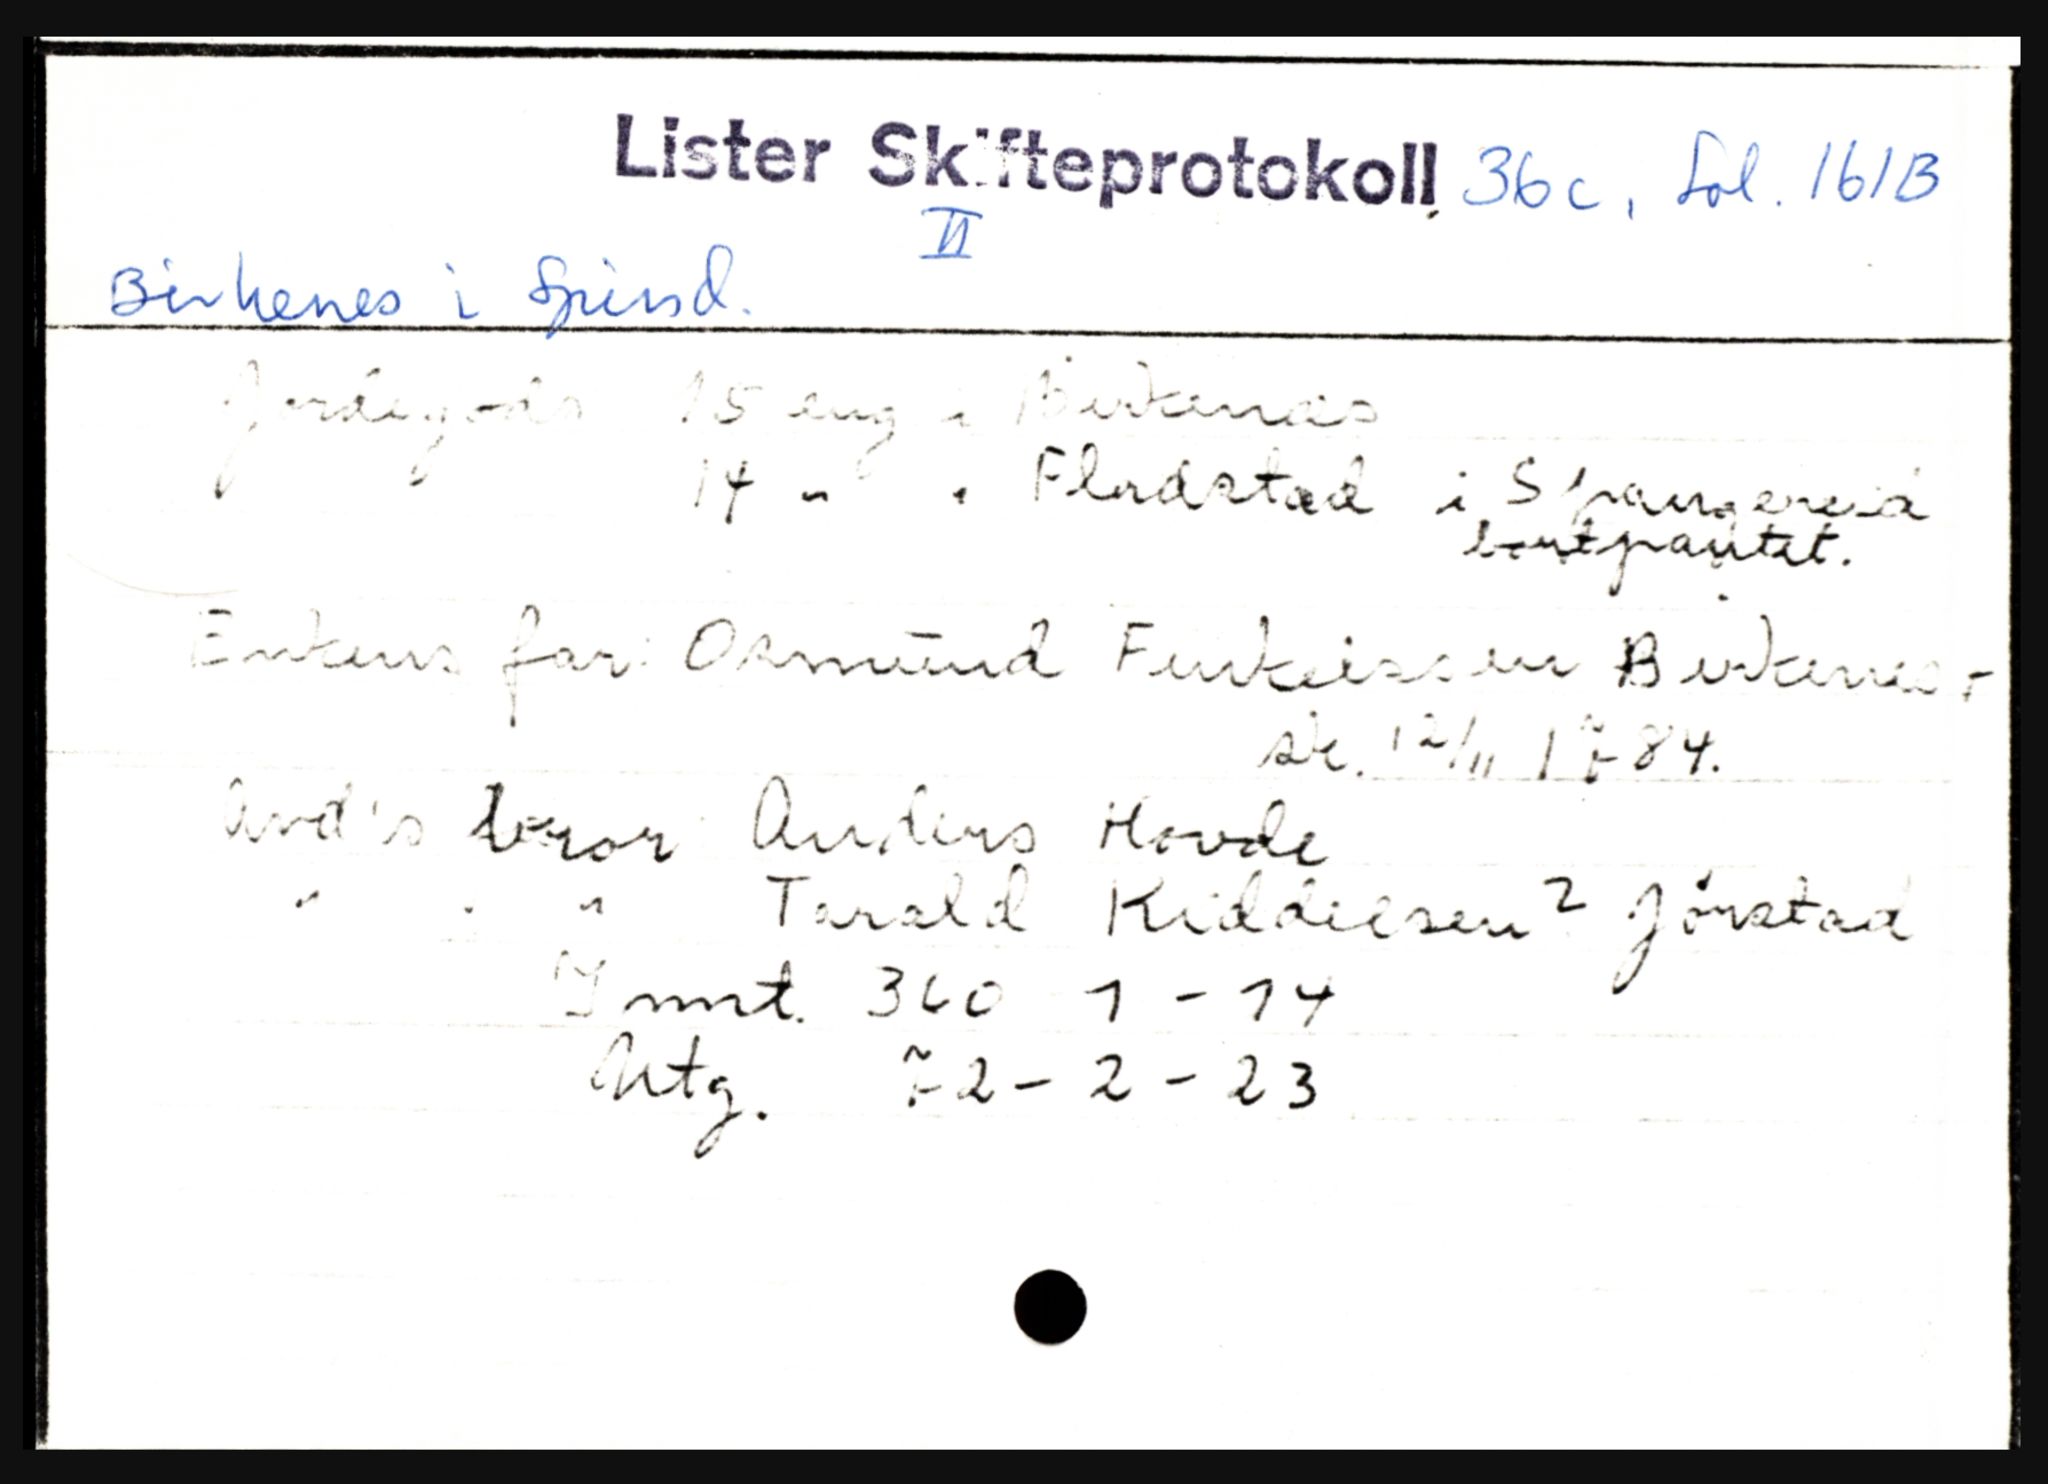 Lister Skifteprotokoll 36c, fol. 161B
II
Birkenes i Spind.
Jordegods 15 eng i Birkenæs
14 " " Fladstad i Spangereid
bortpantet.
Enkens far: Osmund Birkenes,
sk. 12/11 1784.
Avd's bror Anders Hovde
" " " Tarald Kiddelsen? Jörstad
Innt. 360 1 - 14
Utg. 72 - 2 - 23